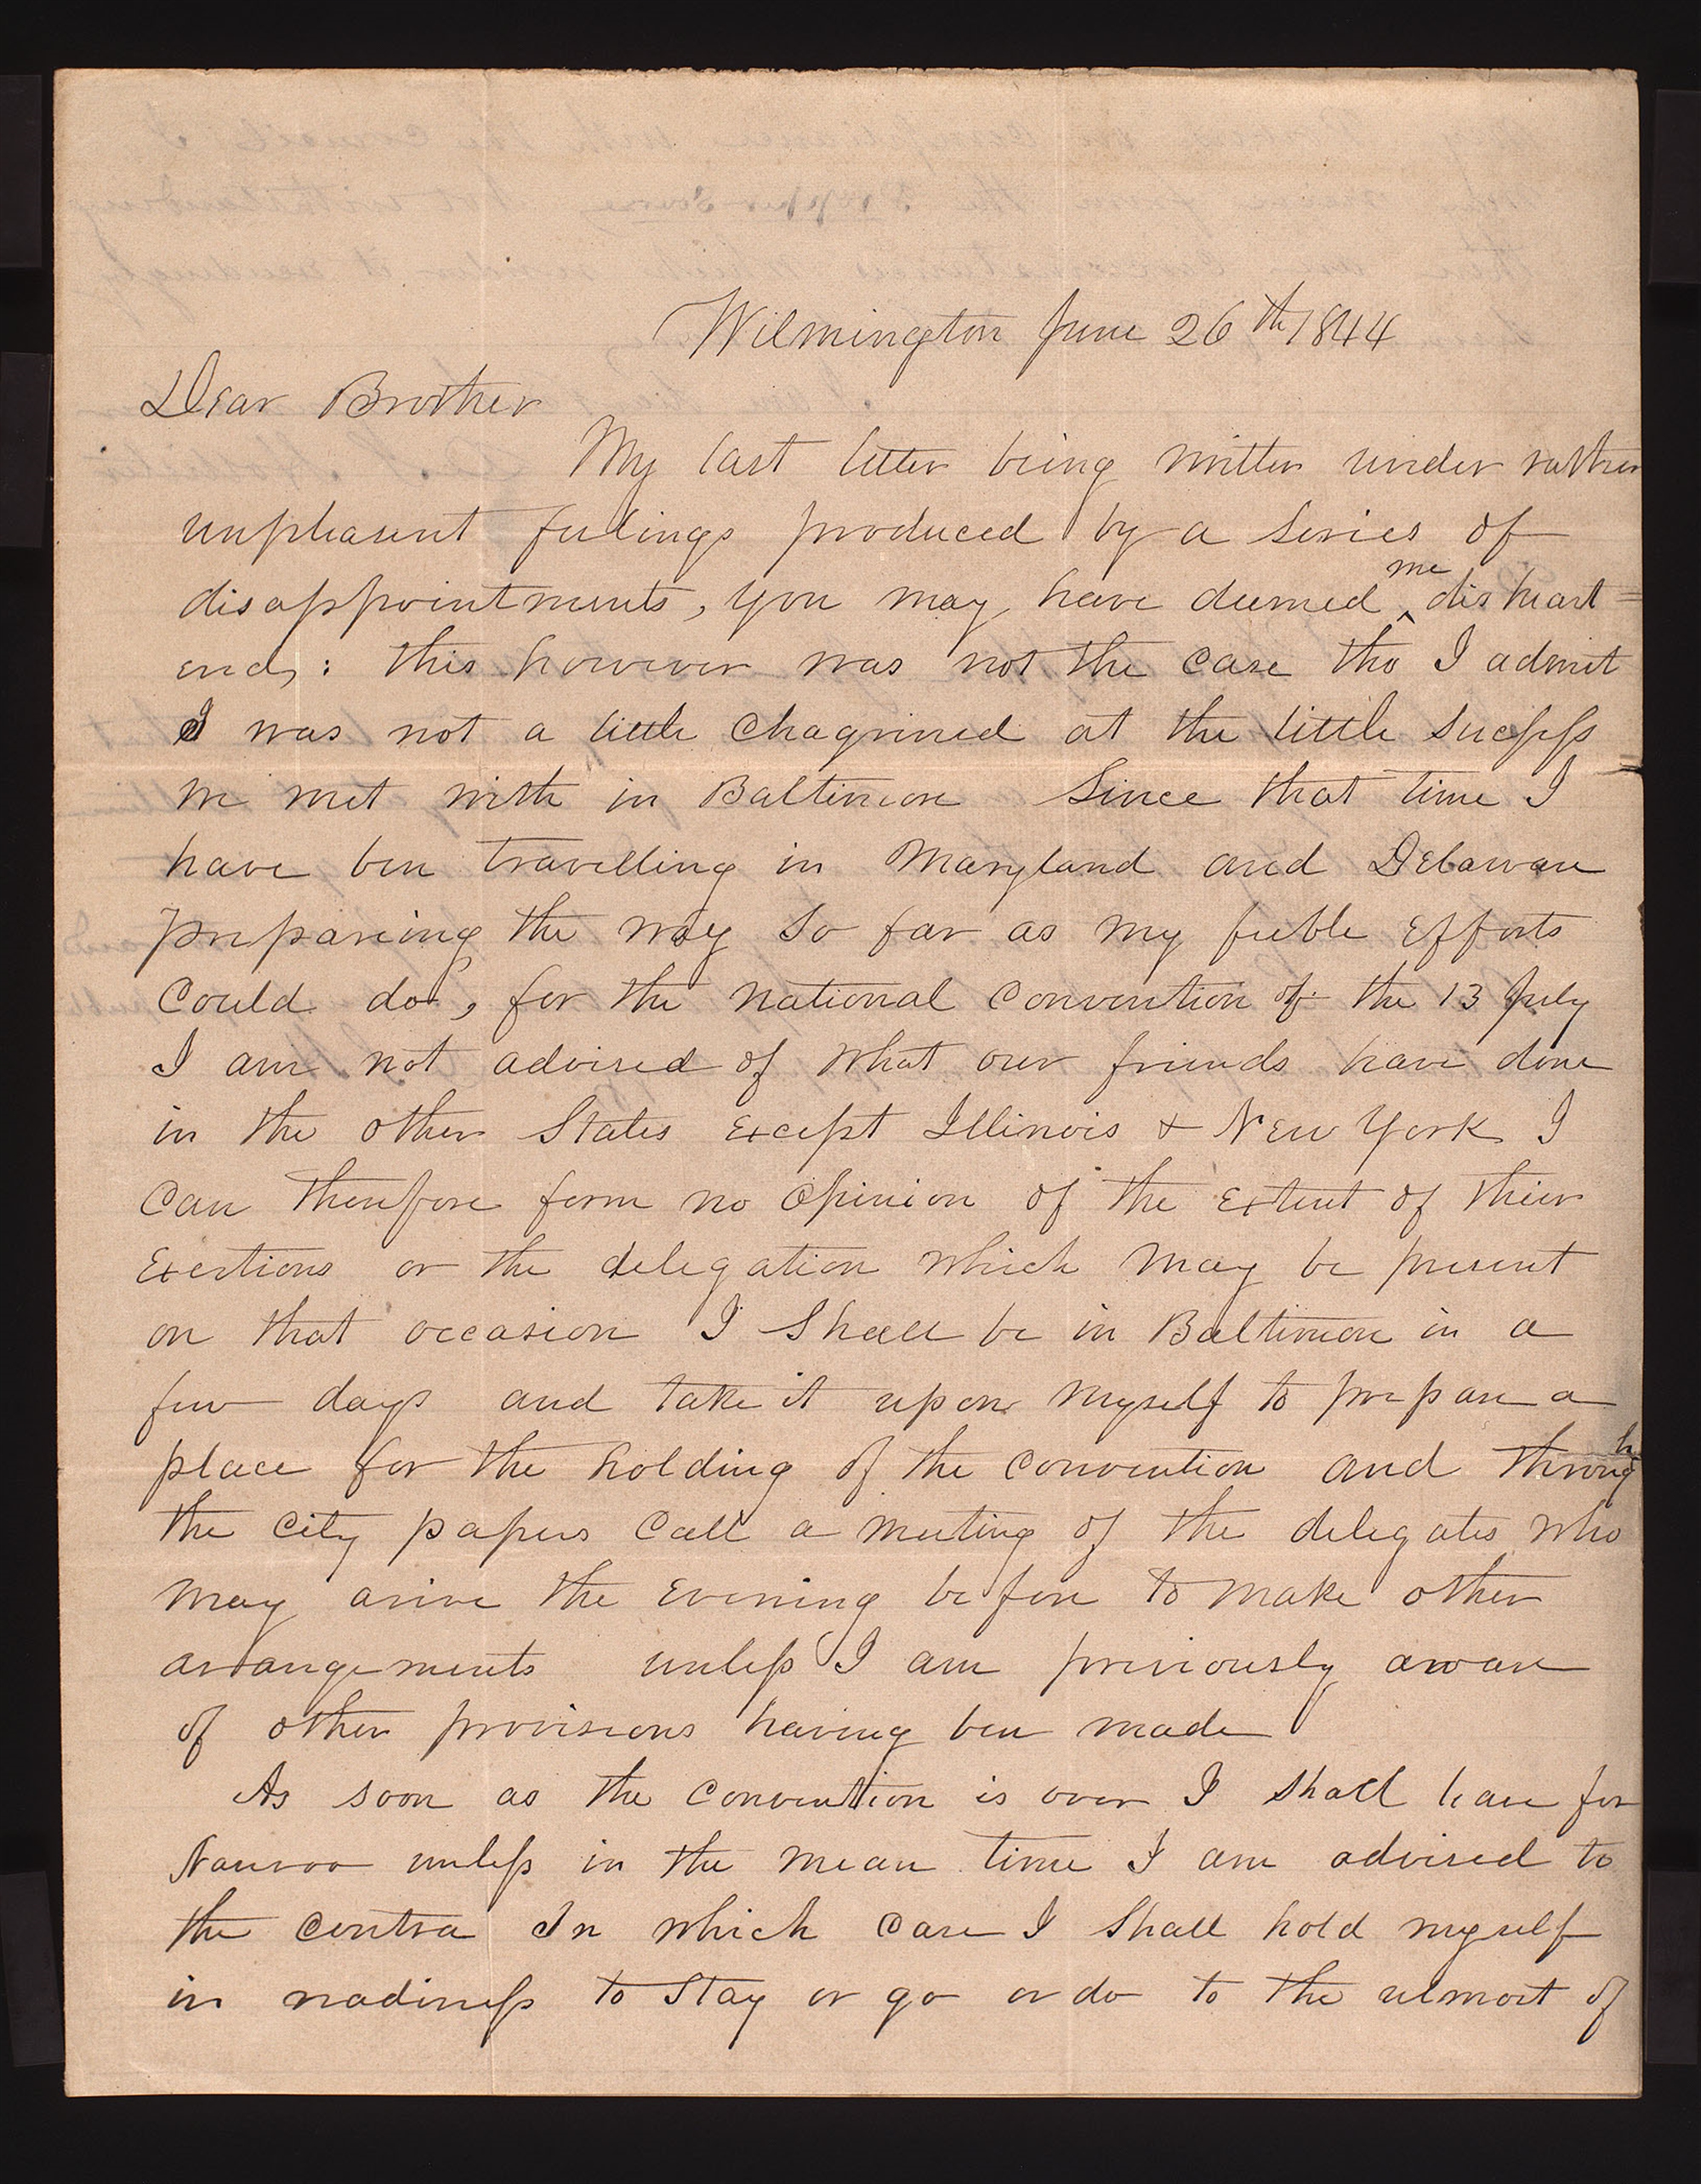 Wilmington June 26th 1844
Dear Brother
My last letter being written under rather
unpleasent feelings produced by a series of
disappointments, you may have deemed me disheart=
end,: this however was not the case tho I admit
I was not a little chagrined at the little success
we met with in Baltimore Since that time I
have ben travelling in Maryland and Delaware
prepareing the way so far as my feeble efforts
could do, for the national convention of the 13 July
I am not advised of what our friends have done
in the other States except Illinois & New York I
can therefore form no opinion of the extent of thier
exertions or the delegation which may be present
on that occasion I Shall be in Baltimore in a
few days and take it upon myself to prepare a
place for the holding of the convention and through
the city papers call a meeting of the delegates who
may arive the evening before to make other
arrangements unless I am previously aware
of other provisions having ben made
As soon as the convention is over I shall leave for
Nauvoo unless in the mean time I am advised to
the contra In which case I shall hold myself
in readiness to stay or go or do to the utmost of